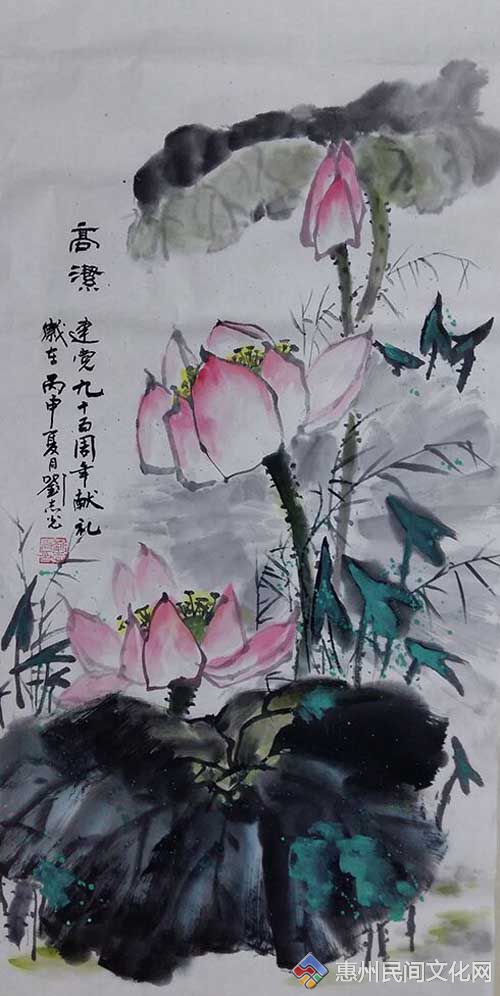 高潔
建党九十五周年献礼
歲在丙申夏月劉志光
惠州民间文化网